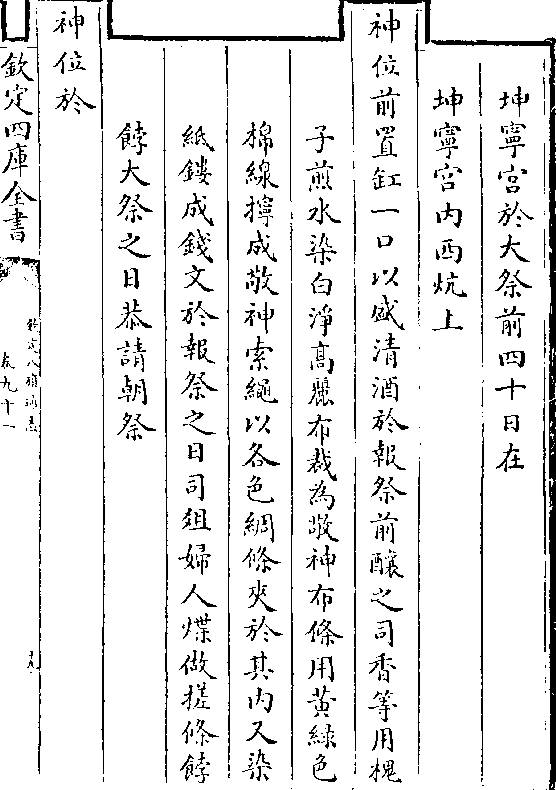 坤寧宮於大祭前四十日在
坤寧宮内西炕上
神位前置缸一口以盛清酒於報祭前釀之司香等用槐
子煎水染白淨髙麗布裁為敬神布條用黄緑色
棉線擰成敬神索繩以各色綢條夾於其内又染
紙鏤成錢文於報祭之日司俎婦人煠做搓條餑
餑大祭之日恭請朝祭
神位於
欽定四庫全書
欽定八旗通志
卷九十一